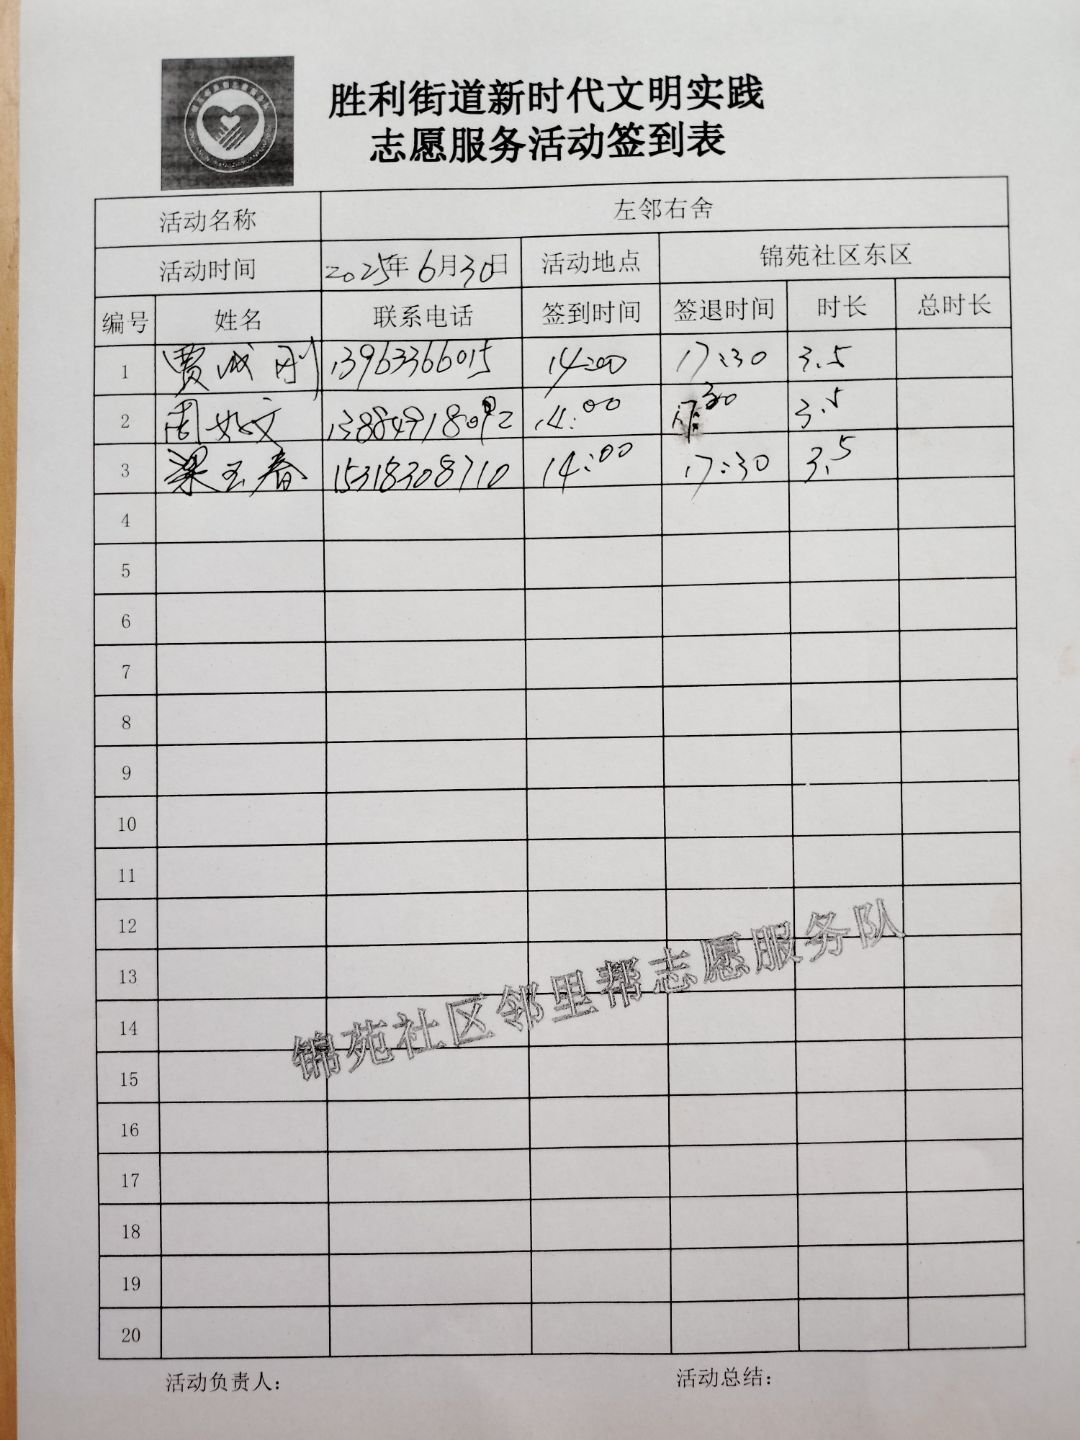 胜利街道新时代文明实践
志愿服务活动签到表
活动名称 左邻右舍
活动时间 2025年6月30日 活动地点 锦苑社区东区
编号 姓名 联系电话 签到时间 签退时间 时长 总时长
1 贾成刚 13963366015 14:00 17:30 3.5
2 周 文 13884918092 14:00 17:30 3.5
3 梁玉春 15318308710 14:00 17:30 3.5
4
5
6
7
8
9
10
11
12
13
14
15
16
17
18
19
20
锦苑社区邻里帮志愿服务队
活动负责人: 活动总结: